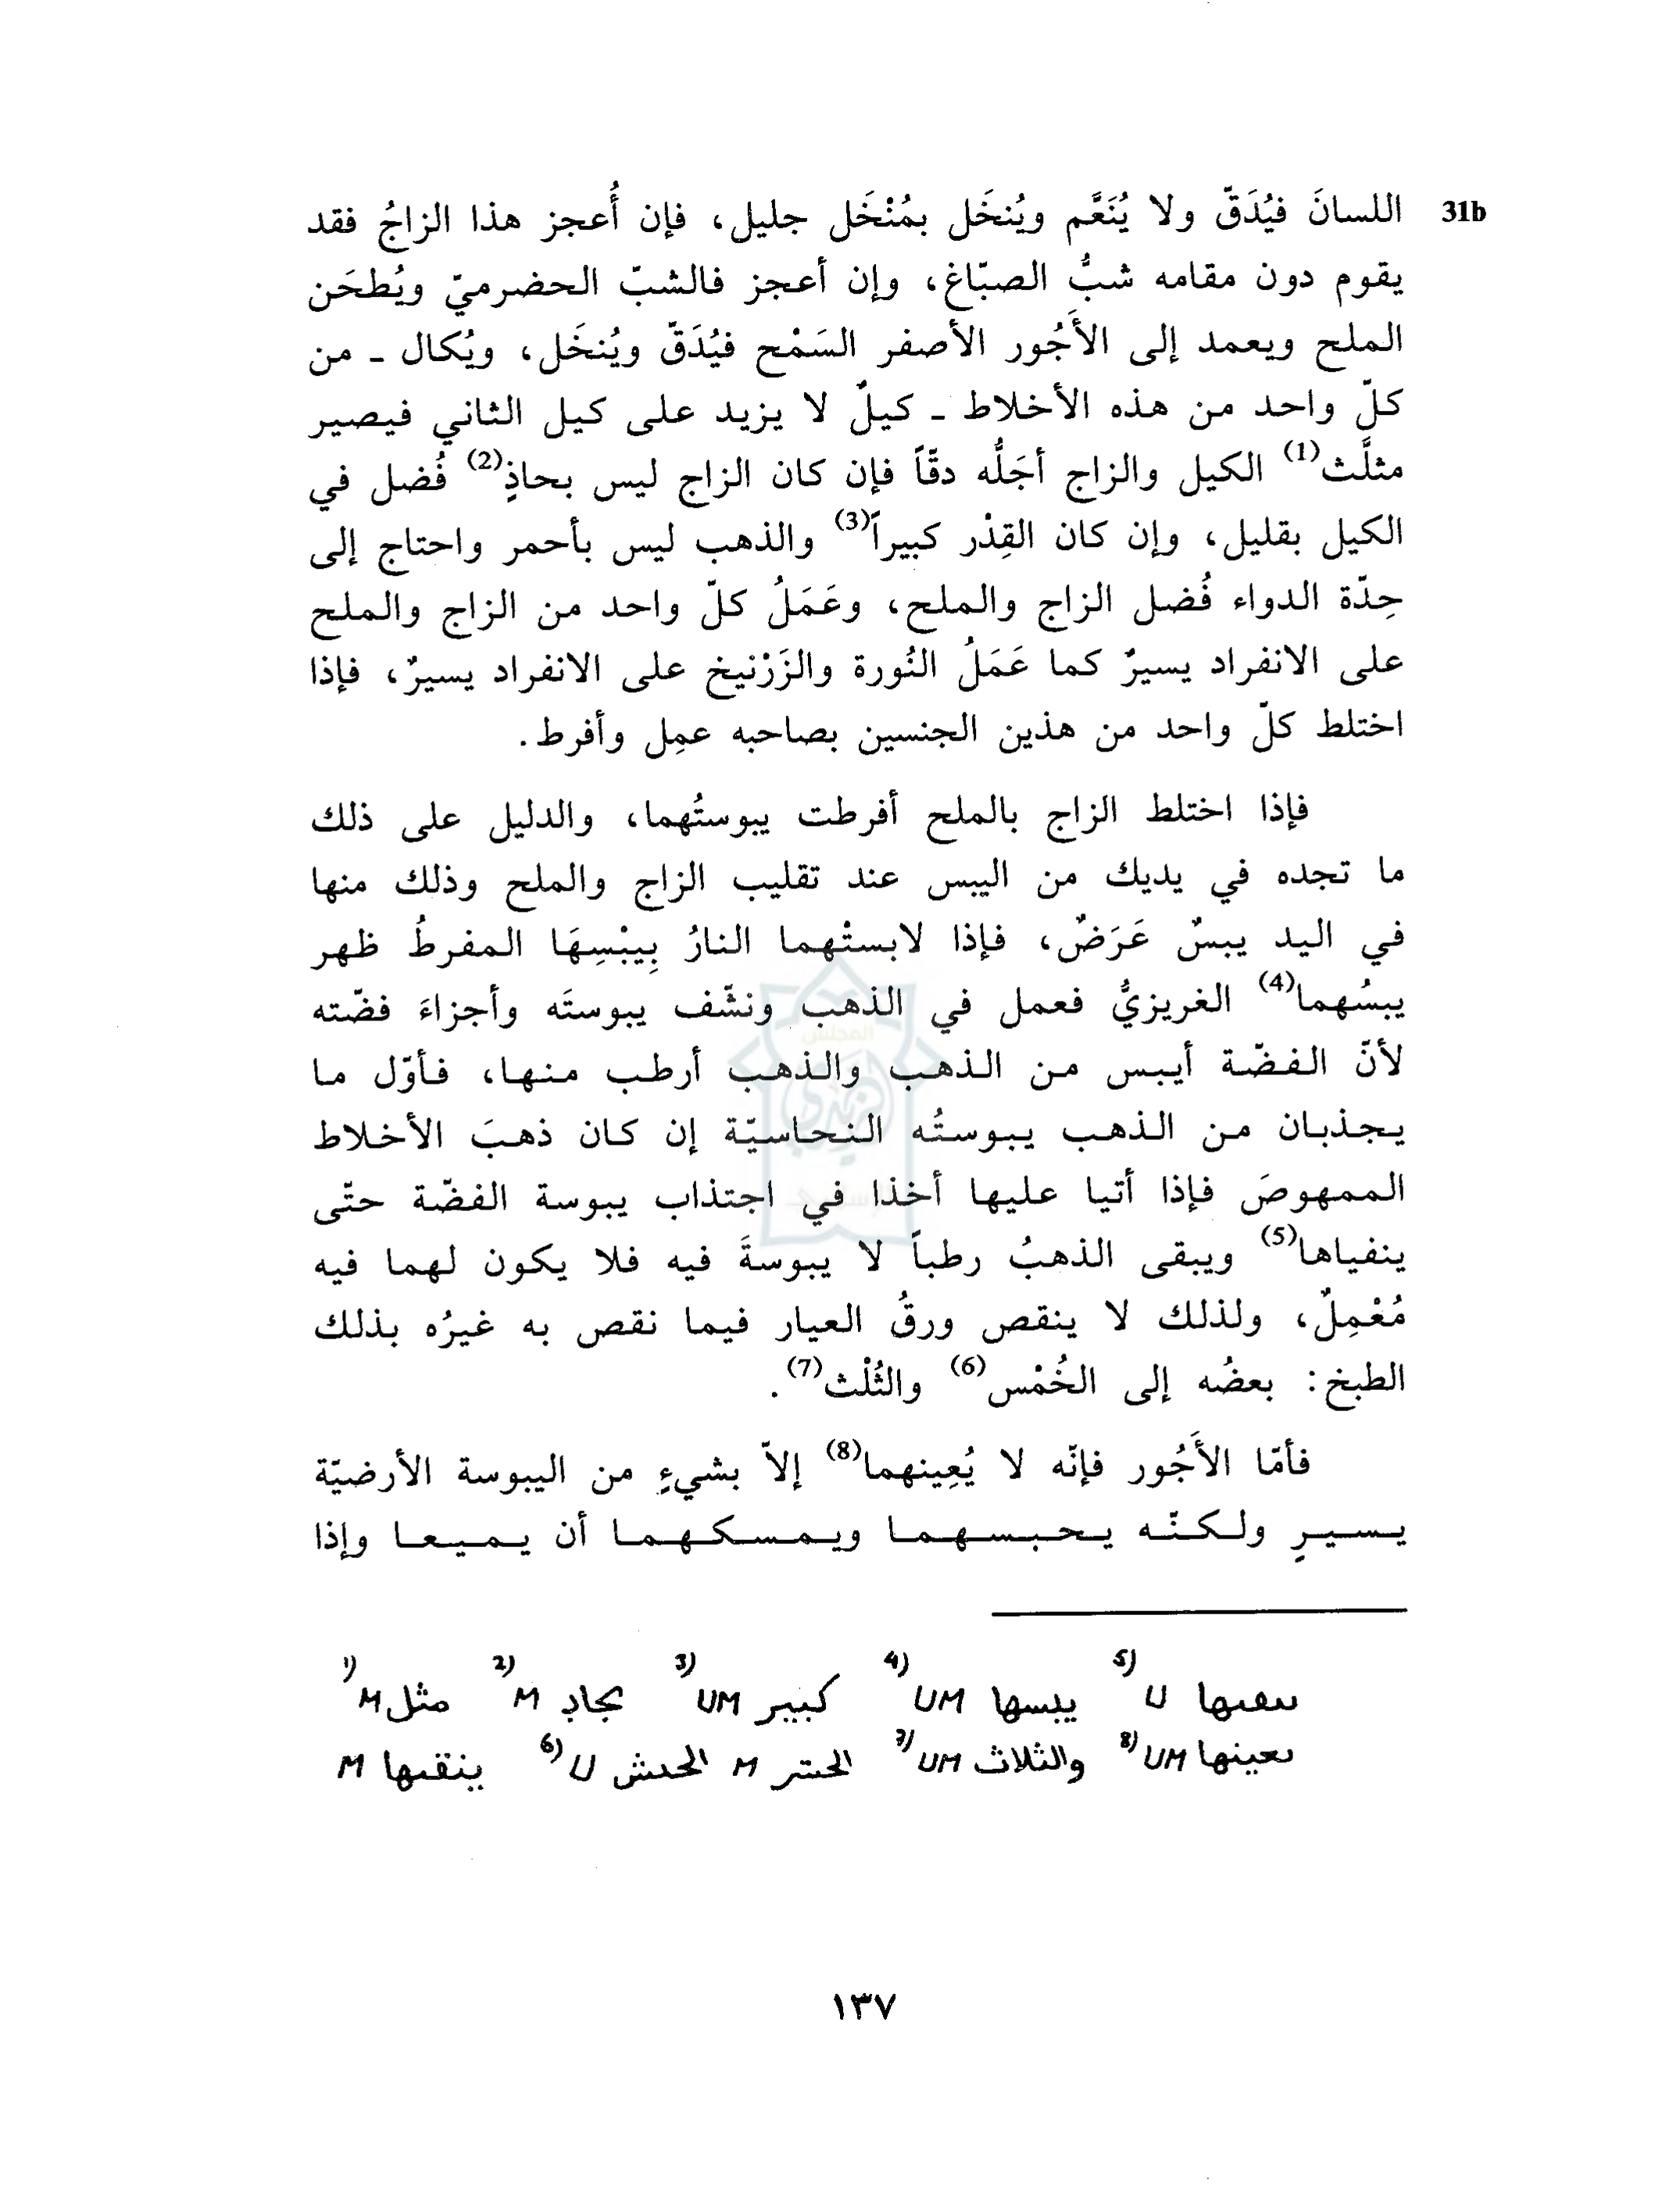 31b اللسانَ فيُدَقّ ولا يُنَعَّم ويُنخَل بمُنْخَل جليل، فإن أُعجز هذا الزاجُ فقد
يقوم دون مقامه شبُّ الصبّاغ، وإن أعجز فالشبّ الحضرميّ ويُطحَن
الملح ويعمد إلى الأَجُور الأصفر السَمْح فيُدَقّ ويُنخَل، ويُكال ـ من
كلّ واحد من هذه الأخلاط ـ كيلٌ لا يزيد على كيل الثاني فيصير
مثلَّث(1) الكيل والزاج أجَلُّه دقّاً فإن كان الزاج ليس بحاذٍ(2) فُضل في
الكيل بقليل، وإن كان القِدْر كبيراً(3) والذهب ليس بأحمر واحتاج إلى
حِدّة الدواء فُضل الزاج والملح، وعَمَلُ كلّ واحد من الزاج والملح
على الانفراد يسيرٌ كما عَمَلُ النُورة والزَرْنيخ على الانفراد يسيرٌ، فإذا
اختلط كلّ واحد من هذين الجنسين بصاحبه عمِل وأفرط.
فإذا اختلط الزاج بالملح أفرطت يبوستُهما، والدليل على ذلك
ما تجده في يديك من اليبس عند تقليب الزاج والملح وذلك منها
في اليد يبسٌ عَرَضٌ، فإذا لابستْهما النارُ بِيبْسِهَا المفرطُ ظهر
يبسُهما(4) الغريزيُّ فعمل في الذهب ونشّف يبوستَه وأجزاءَ فضّته
لأنّ الفضّة أيبس من الذهب والذهب أرطب منها، فأوّل ما
يجذبان من الذهب يبوستُه النحاسيّة إن كان ذهبَ الأخلاط
الممهوصَ فإذا أتيا عليها أخذا في اجتذاب يبوسة الفضّة حتّى
ينفياها(5) ويبقى الذهبُ رطباً لا يبوسةَ فيه فلا يكون لهما فيه
مُعْمِلٌ، ولذلك لا ينقص ورقُ العيار فيما نقص به غيرُه بذلك
الطبخ: بعضُه إلى الخُمْس(6) والثُلْث(7).
فأمّا الأَجُور فإنّه لا يُعِينهما(8) إلاّ بشيءٍ من اليبوسة الأرضيّة
يسيرٍ ولكنّه يحبسهما ويمسكهما أن يميعا وإذا
1) M مثل 2) M بجاد 3) UM كبير 4) UM يبسها 5) U
M 6) U 7) UM والثلاث 8) UM
١٣٧